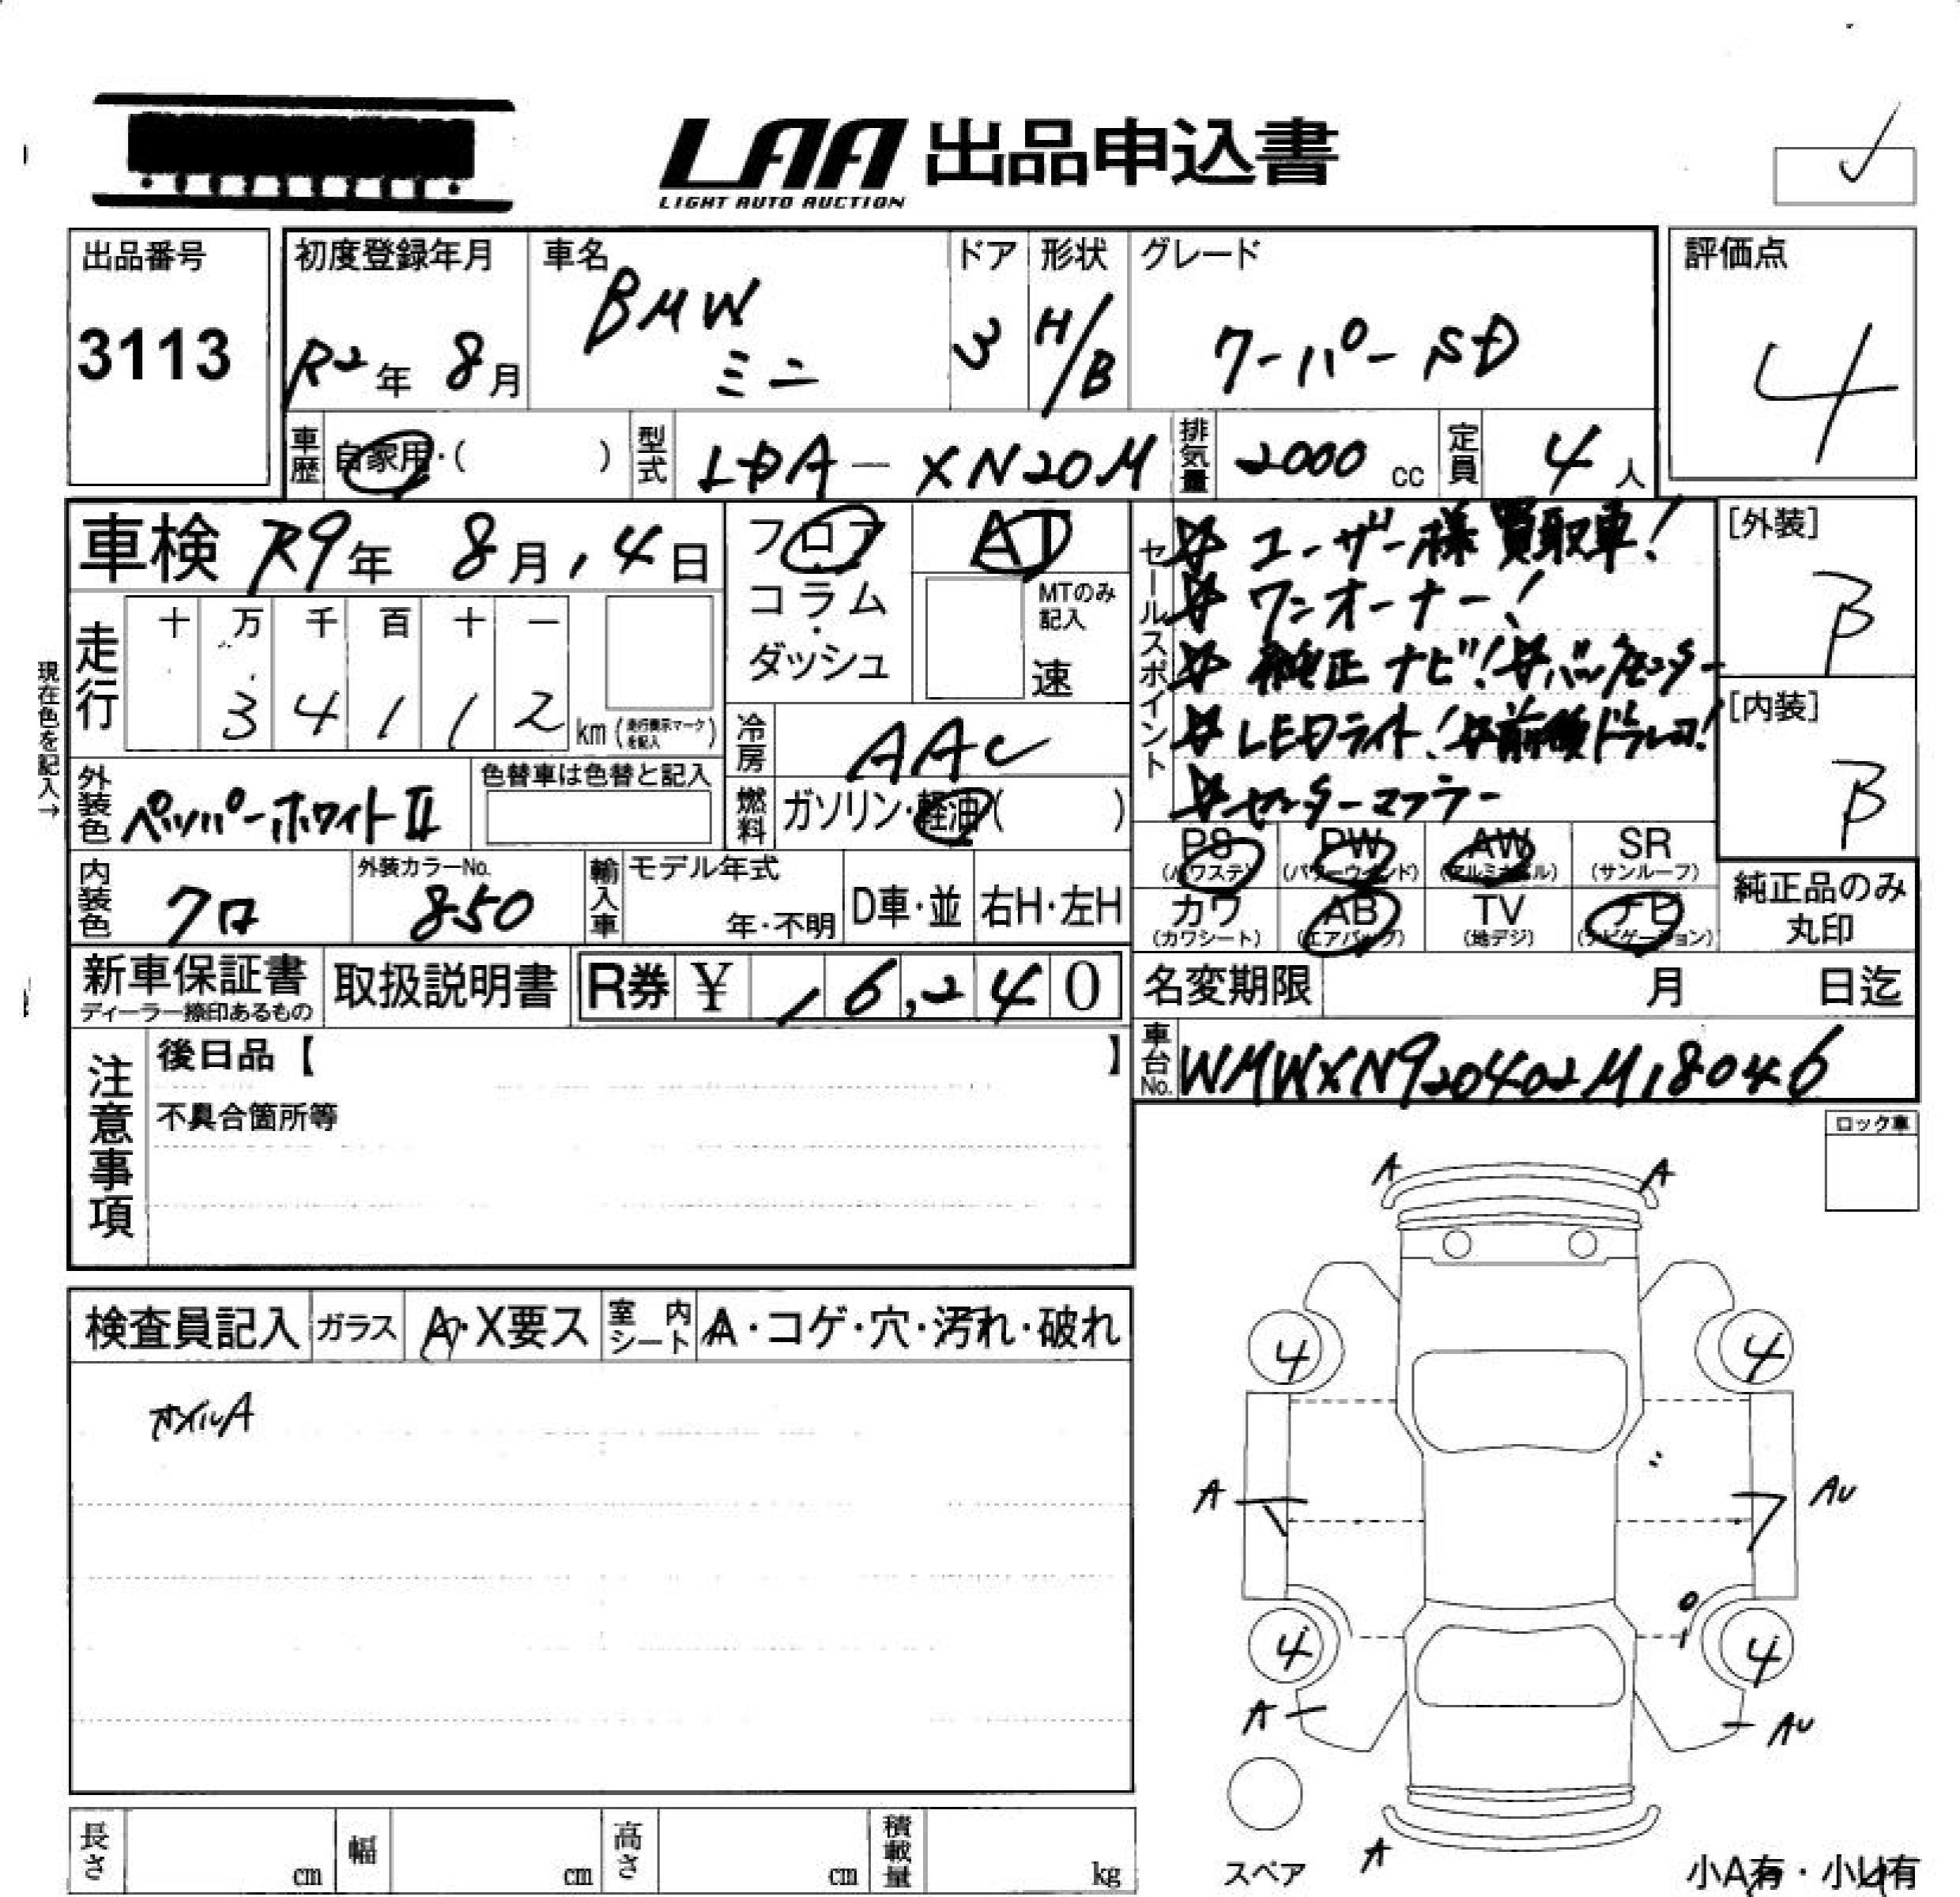 LAA 出品申込書
LIGHT AUTO AUCTION
出品番号
3113
初度登録年月
R2年 8月
車名
BMW
ミニ
ドア
3
形状
H/B
グレード
クーパーSD
評価点
4
車歴 自家用・( )
型式 LDA-XN20M
排気量 2000 cc
定員 4人
車検 R9年 8月14日
走行
十 万 千 百 十 一
3 4 1 1 2 km (走行表示マークを記入)
現在色を記入→
フロア
コラム
・
ダッシュ
AT
MTのみ
記入
速
冷房 AAC
燃料 ガソリン・軽油( )
セールスポイント
☆ユーザー様買取車!
☆ワンオーナー!
☆純正ナビ!☆バックモニター
☆LEDライト!☆前後ドラレコ!
☆センターマフラー
[外装]
B
[内装]
B
外装色 ペッパーホワイトII
色替車は色替と記入
内装色 クロ
外装カラーNo.
850
輸入車
モデル年式
年・不明
D車・並
右H・左H
PS
(パワステ)
PW
(パワーウィンド)
AW
(アルミホイル)
SR
(サンルーフ)
カワ
(カワシート)
AB
(エアバッグ)
TV
(地デジ)
ナビ
(ナビゲーション)
純正品のみ
丸印
新車保証書
ディーラー捺印あるもの
取扱説明書
R券 ¥ 16,240
名変期限 月 日迄
車台No. WMWXN920402M18046
注意事項
後日品【 】
不具合箇所等
ロック車
検査員記入
ガラス A・X要ス
室内シート A・コゲ・穴・汚れ・破れ
オイルA
A A
4 4
A AU
4 4
A AU
A
スペア
小A有・小U有
長さ cm
幅 cm
高さ cm
積載量 kg